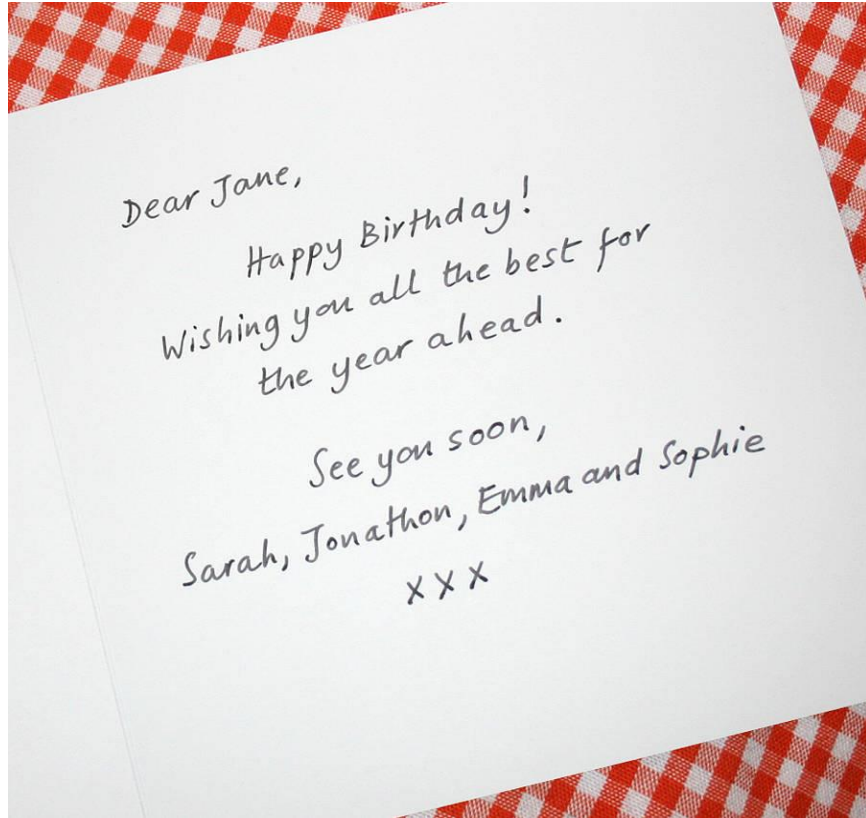 Dear Jane,
Happy Birthday!
Wishing you all the best for
the year ahead.
See you soon,
Sarah, Jonathon, Emma and Sophie
x x x